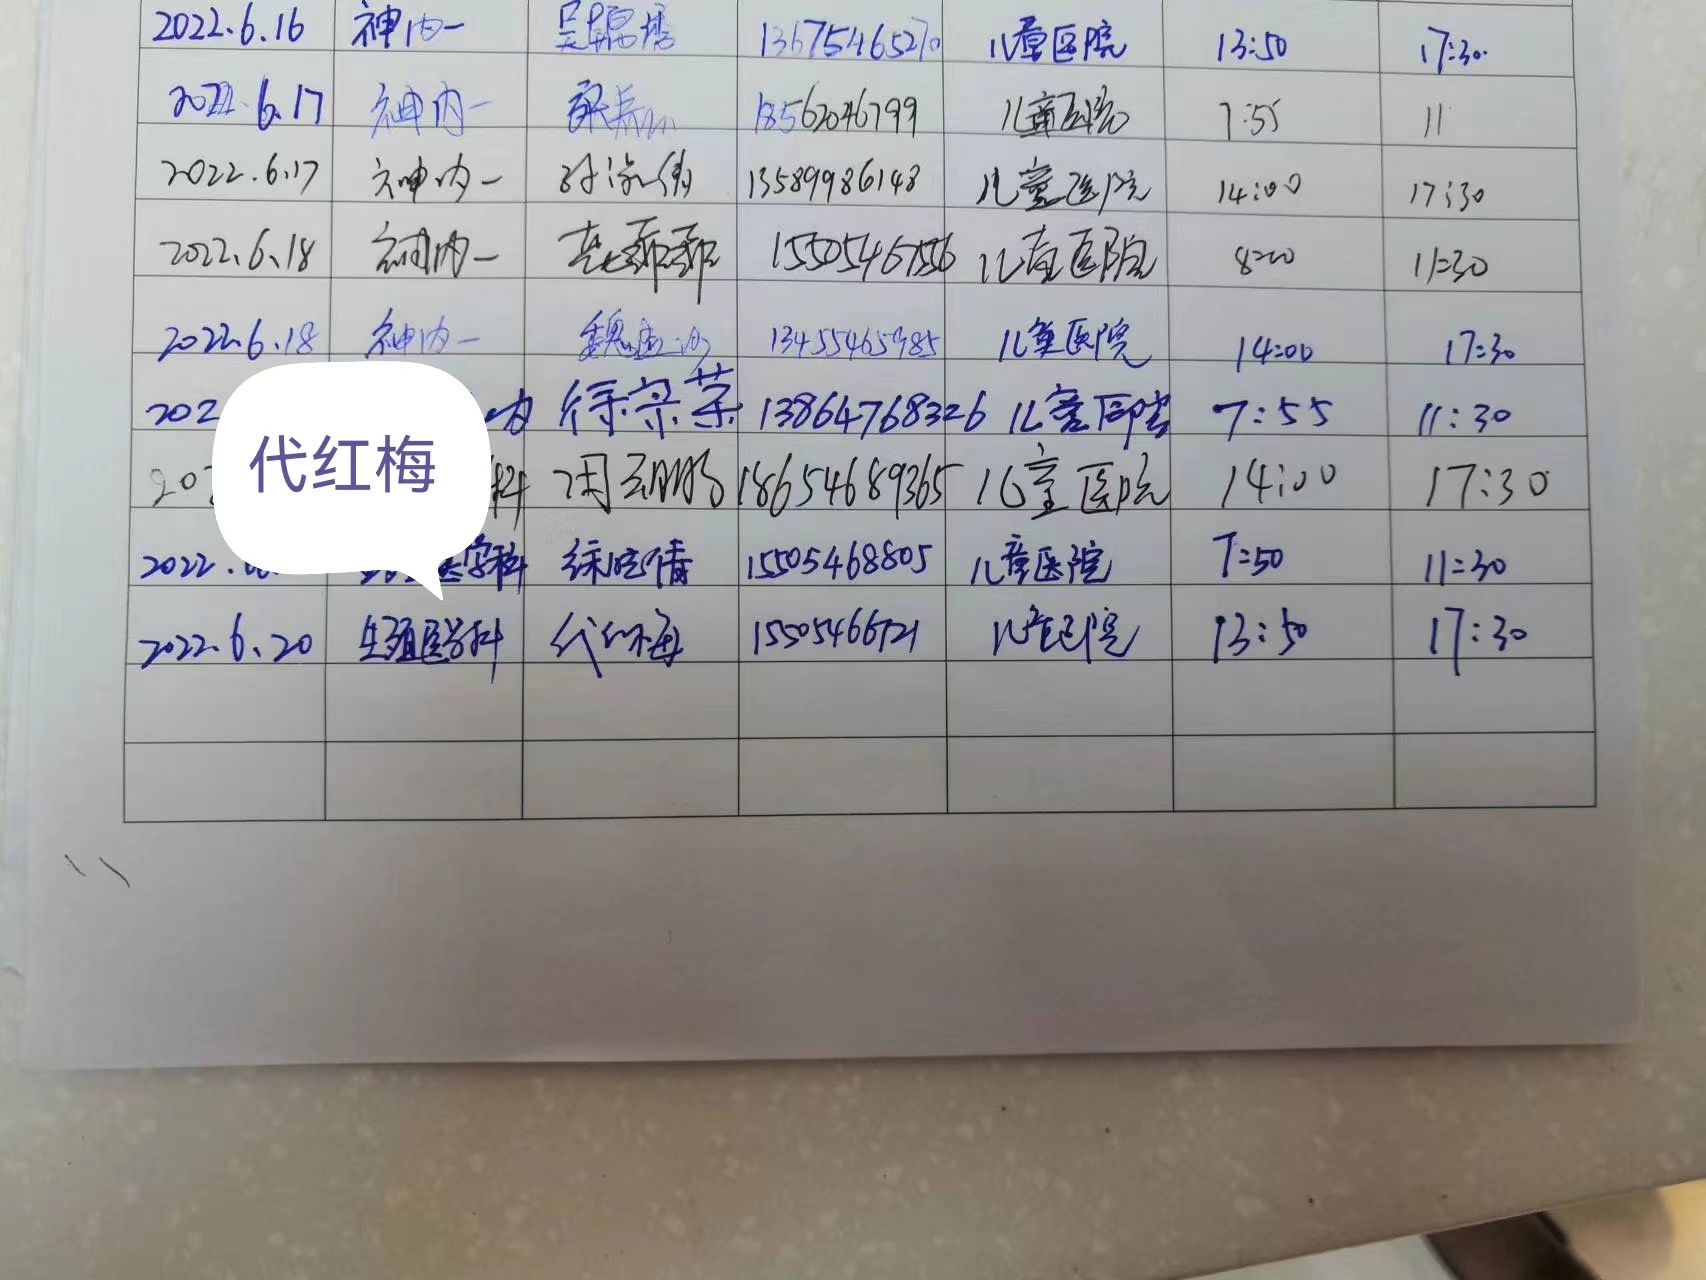 2022.6.16 神内一 13675465270 儿童医院 13:50 17:30
2022.6.17 神内一 18562046799 儿童医院 7:55 11
2022.6.17 神内一 13589986148 儿童医院 14:00 17:30
2022.6.18 神内一 儿童医院 8:00 11:30
2022.6.18 神内一 13455465985 儿童医院 14:00 17:30
202 内 徐宗荣 13864768326 儿童医院 7:55 11:30
代红梅
20 科 周鹏 18654689365 儿童医院 14:00 17:30
2022. 医学科 徐晓倩 15505468805 儿童医院 7:50 11:30
2022.6.20 生殖医学科 代红梅 15505466721 儿童医院 13:50 17:30